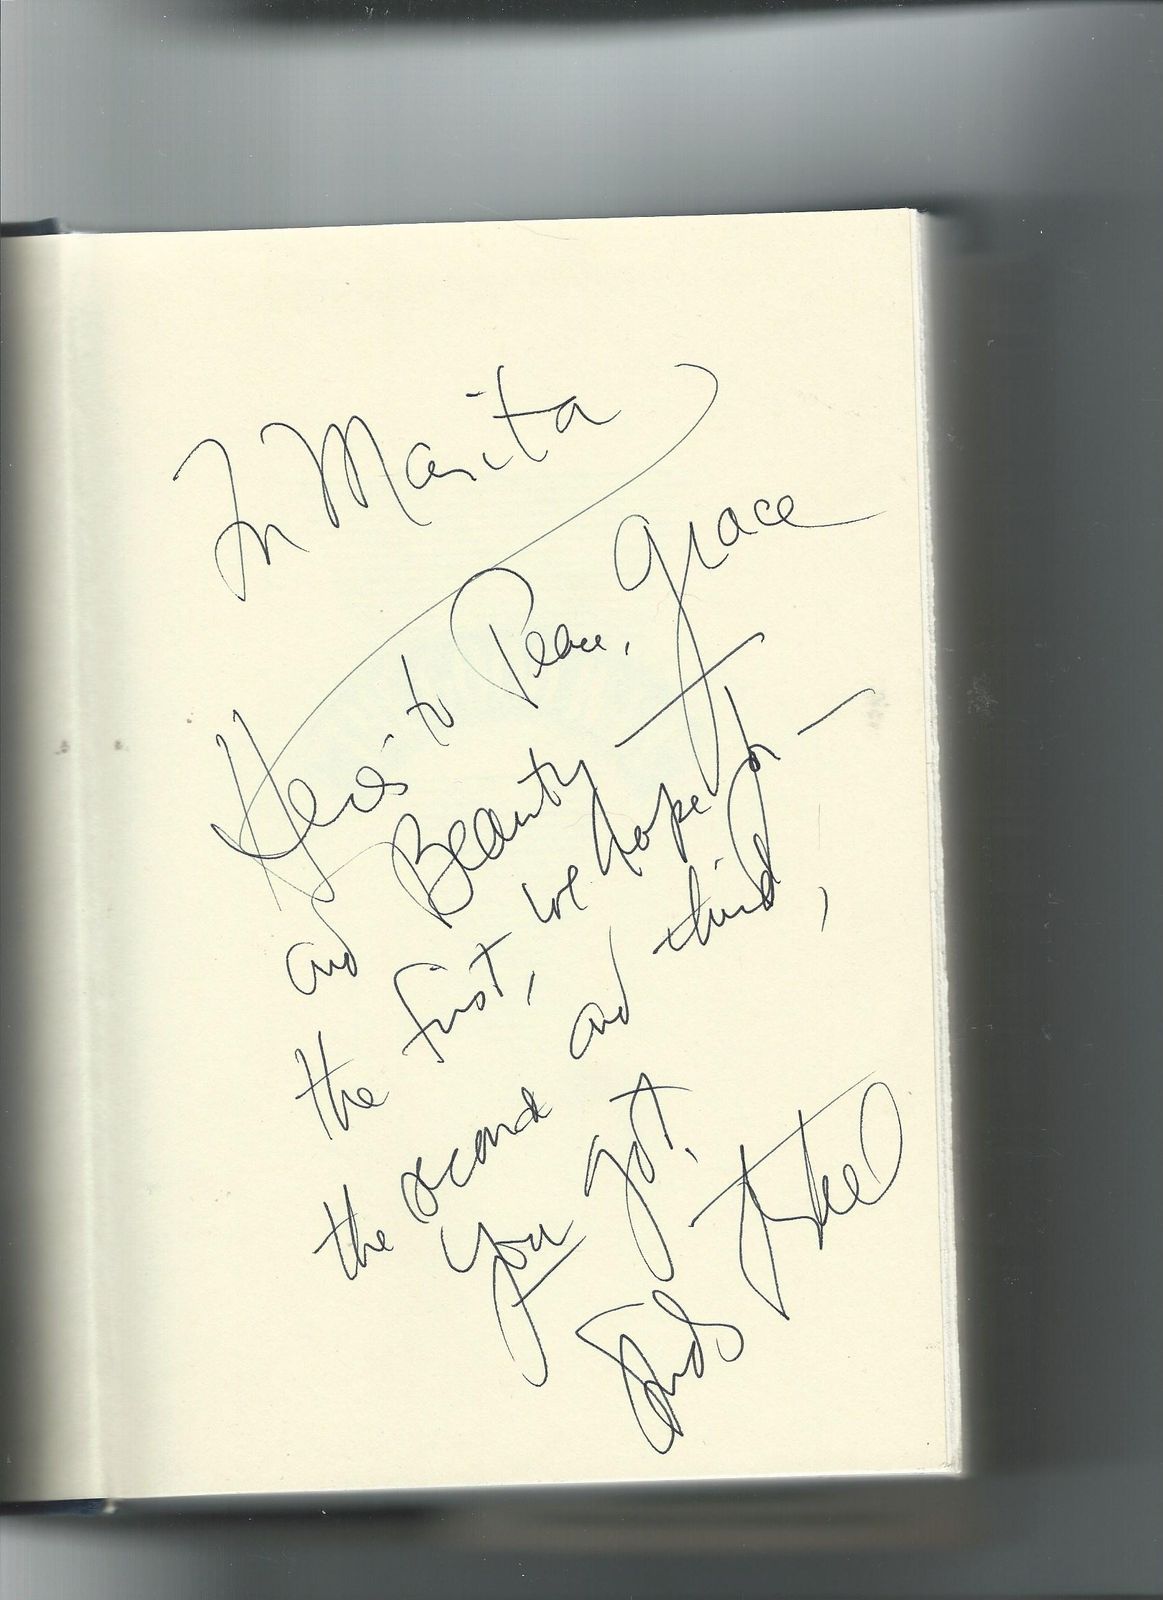 For Marita
Here's to Peace, Grace
and Beauty —
the first, we hope for —
the second and third,
you got.
Studs Terkel